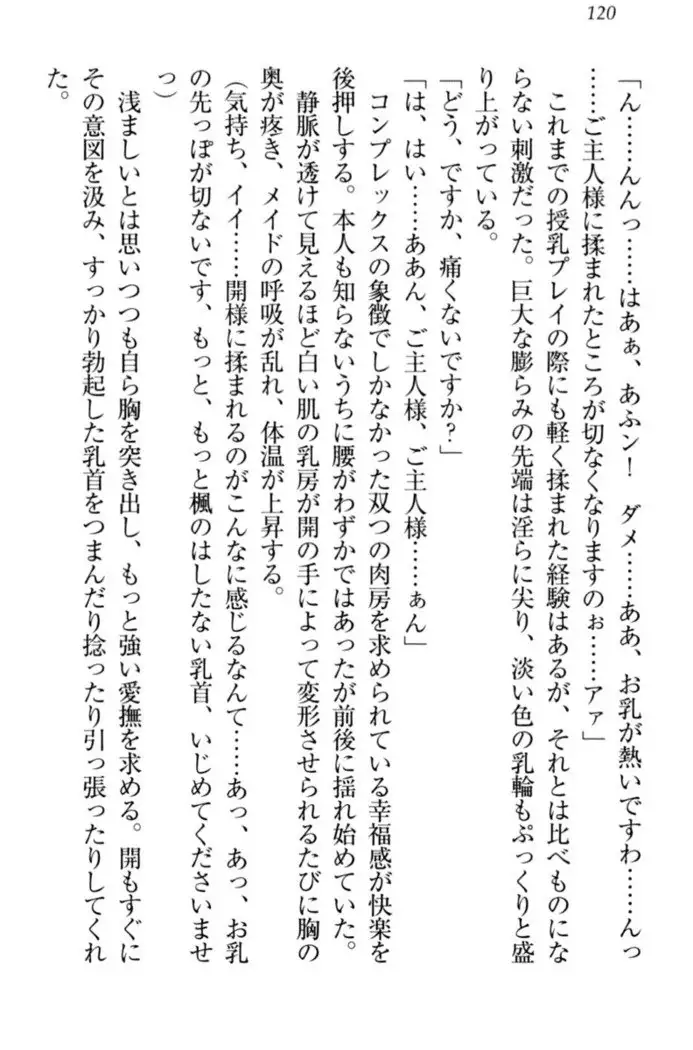 120
「ん……んんっ……はあぁ、あふン！　ダメ……ああ、お乳が熱いですわ……んっ
……ご主人様に揉まれたところが切なくなりますのぉ……アァ」
これまでの授乳プレイの際にも軽く揉まれた経験はあるが、それとは比べものにな
らない刺激だった。巨大な膨らみの先端は淫らに尖り、淡い色の乳輪もぷっくりと盛
り上がっている。
「どう、ですか、痛くないですか？」
「は、はい……ああん、ご主人様、ご主人様……ぁん」
コンプレックスの象徴でしかなかった双つの肉房を求められている幸福感が快楽を
後押しする。本人も知らないうちに腰がわずかではあったが前後に揺れ始めていた。
静脈が透けて見えるほど白い肌の乳房が開の手によって変形させられるたびに胸の
奥が疼き、メイドの呼吸が乱れ、体温が上昇する。
（気持ち、イイ……開様に揉まれるのがこんなに感じるなんて……あっ、あっ、お乳
の先っぽが切ないです、もっと、もっと楓のはしたない乳首、いじめてくださいませ
っ）
浅ましいとは思いつつも自ら胸を突き出し、もっと強い愛撫を求める。開もすぐに
その意図を汲み、すっかり勃起した乳首をつまんだり捻ったり引っ張ったりしてくれ
た。